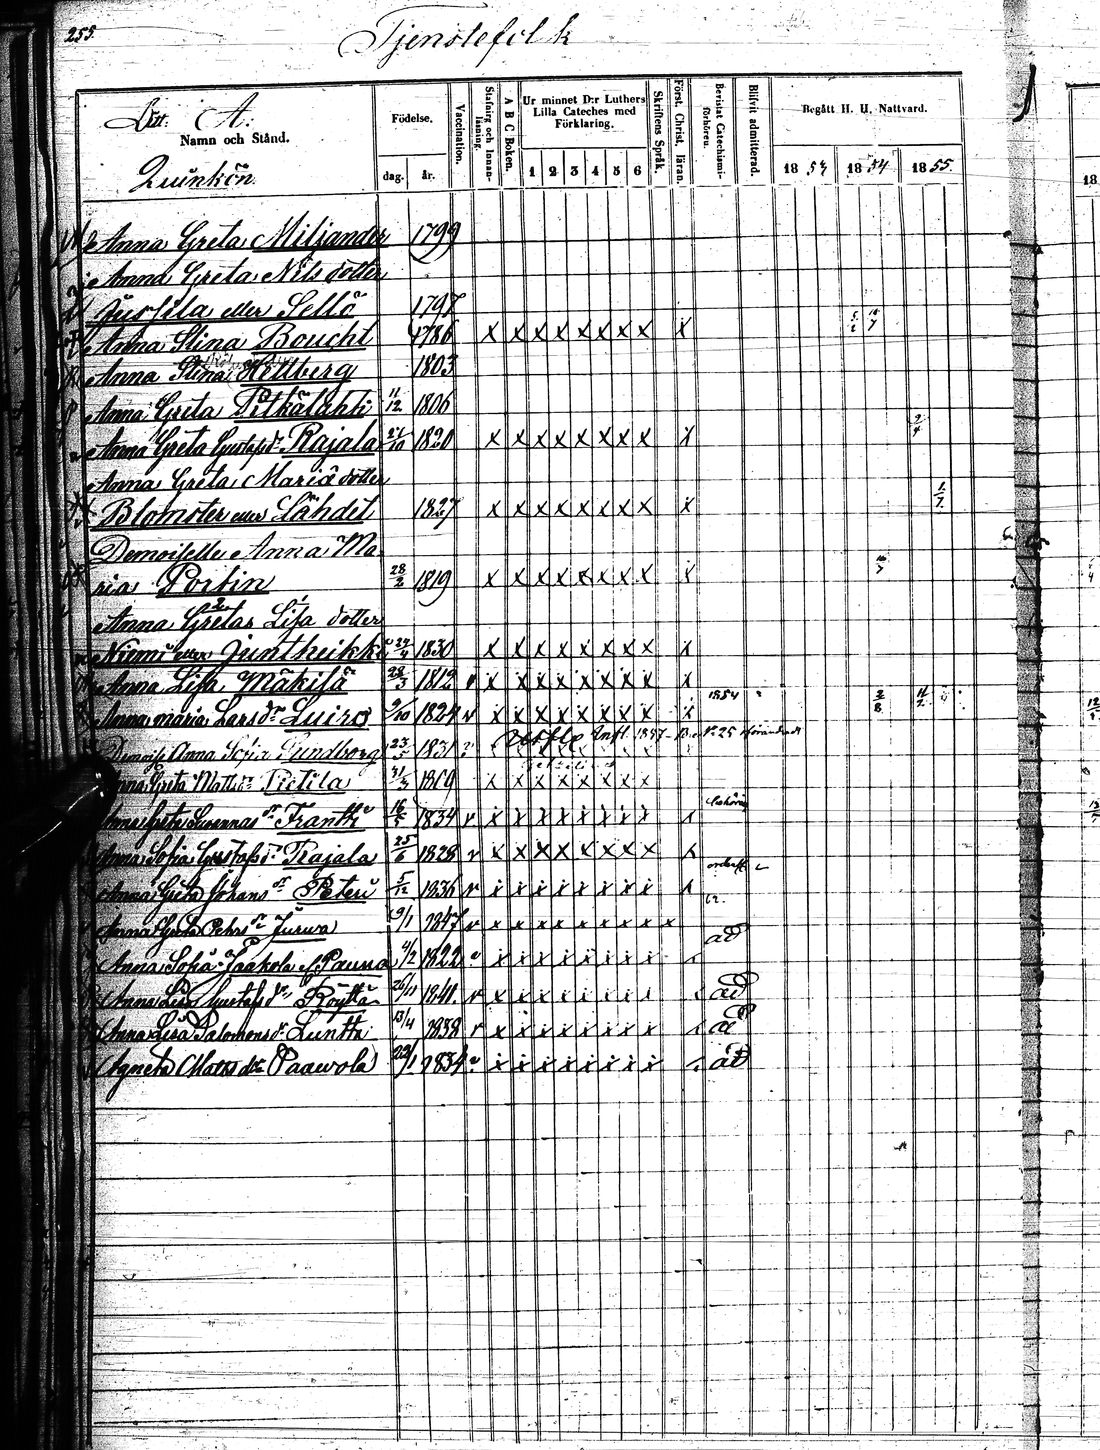 255.
Tjenstefolk
Litt. A:
Namn och Stånd.
Quinkön.
Födelse.
dag. år.
Vaccination.
Stafning och Innanläsning.
A B C Boken.
Ur minnet D:r Luthers Lilla Cateches med Förklaring.
1 2 3 4 5 6
Skriftens Språk.
Först. Christ. läran.
Bevistat Catechismiförhören.
Blifvit admitterad.
Begått H. H. Nattvard.
18 54 18 55.
Anna Greta Miljander 1799
Anna Greta Nils dotter
Jussila eller Sellö 1797
Anna Stina Boucht 1786 x x x x x x x x x
Anna Stina Hellberg 1803
Anna Greta Pitkälahti 11/12 1806
Anna Greta Gustafsdr Rajala 1820 x x x x x x x x x 2/4
Anna Greta Maria dotter
Blomster eller Lähdet 1827 x x x x x x x x x 1/7
Demoiselle Anna Ma
ria Portin 28/2 1819 x x x x x x x x x
Anna Gretas Lisa dotter
Niemi eller Juntheikki 1830 x x x x x x x x x
Anna Lisa Mäkilä 28/3 1812 v x x x x x x x x x
Anna Maria Larsdr Luiro 9/10 1824 v x x x x x x x x x 1854
Anna Sofia Sundborg 23/5 1831 Infl. 1857 No 25
Anna Greta Matts dr Pietilä 31/3 1809 x x x x x x x x
Anna Greta Susannas dr Frantti 16/5 1834 v x x x x x x x x x
Anna Sofia Gustafsdr Rajala 25/6 1828 v x x x x x x x x x
Anna Greta Johans dr Peteri 5/12 1836 v x x x x x x x x x
Anna Greta Pehrs dr Jurva 19/1 1847 v x x x x x x x x x
Anna Sofia Jaakola el. Pauna 4/2 1822 x x x x x x x x x ad
Anna Lisa Gustafsdr Röyttä 26/11 1841. v x x x x x x x x x ad
Anna Lisa Salomonsdr Luntta 13/4 1838 v x x x x x x x x x ad
Agneta Matts dtr Paavola 1834 x x x x x x x x x ad